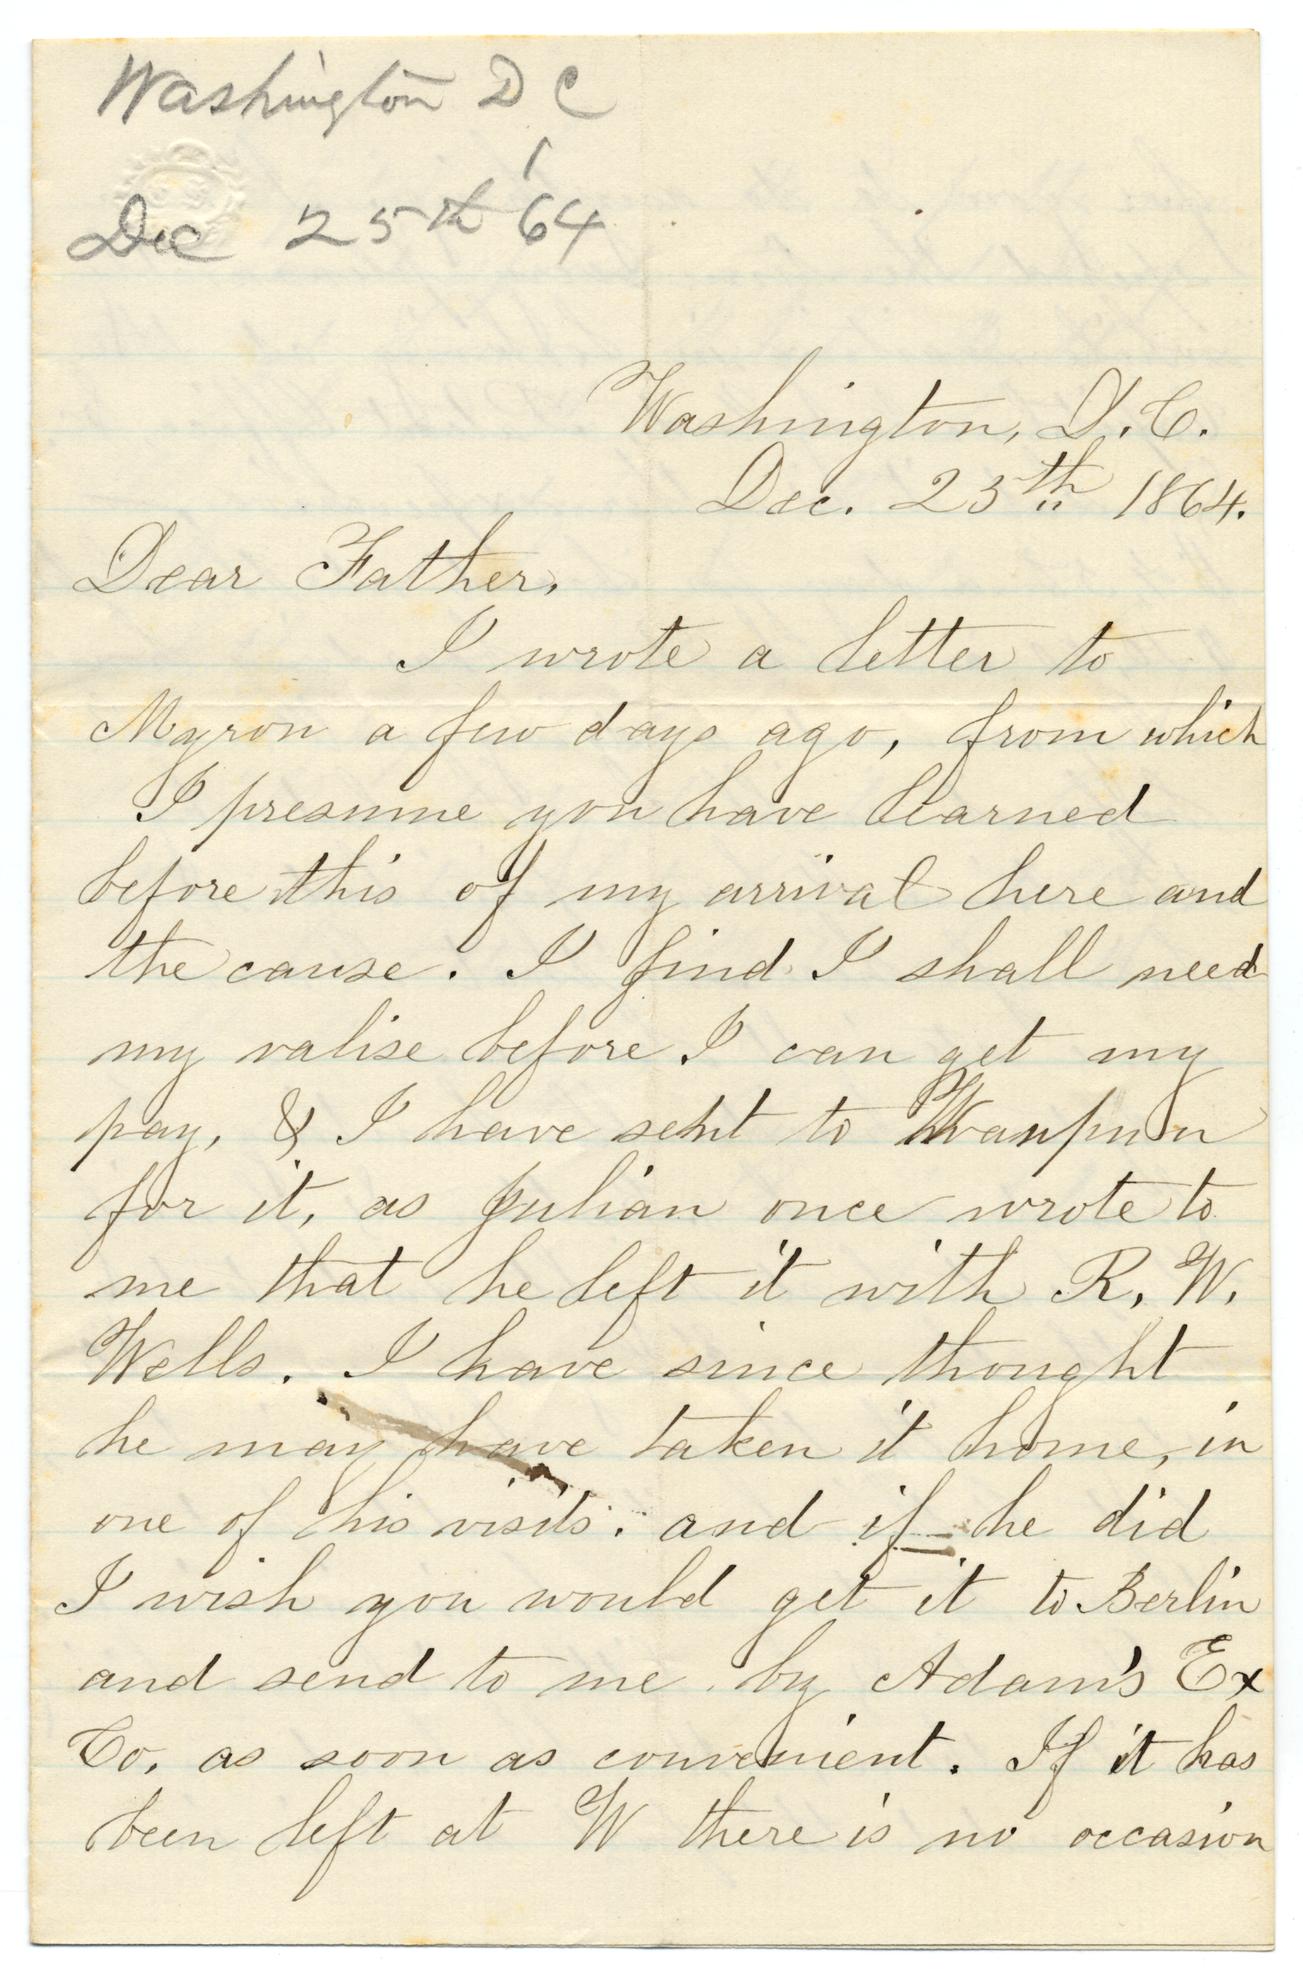 Washington D C
Dec 25th '64
Washington, D.C.
Dec. 25th 1864.
Dear Father,
I wrote a letter to
Myron a few days ago, from which
I presume you have learned
before this of my arrival here and
the cause. I find I shall need
my valise before I can get my
pay, & I have sent to Waupun
for it, as Julian once wrote to
me that he left it with R. W.
Wells. I have since thought
he may have taken it home, in
one of his visits. and if he did
I wish you would get it to Berlin
and send to me by Adam's Ex
Co. as soon as convenient. If it has
been left at W there is no occasion